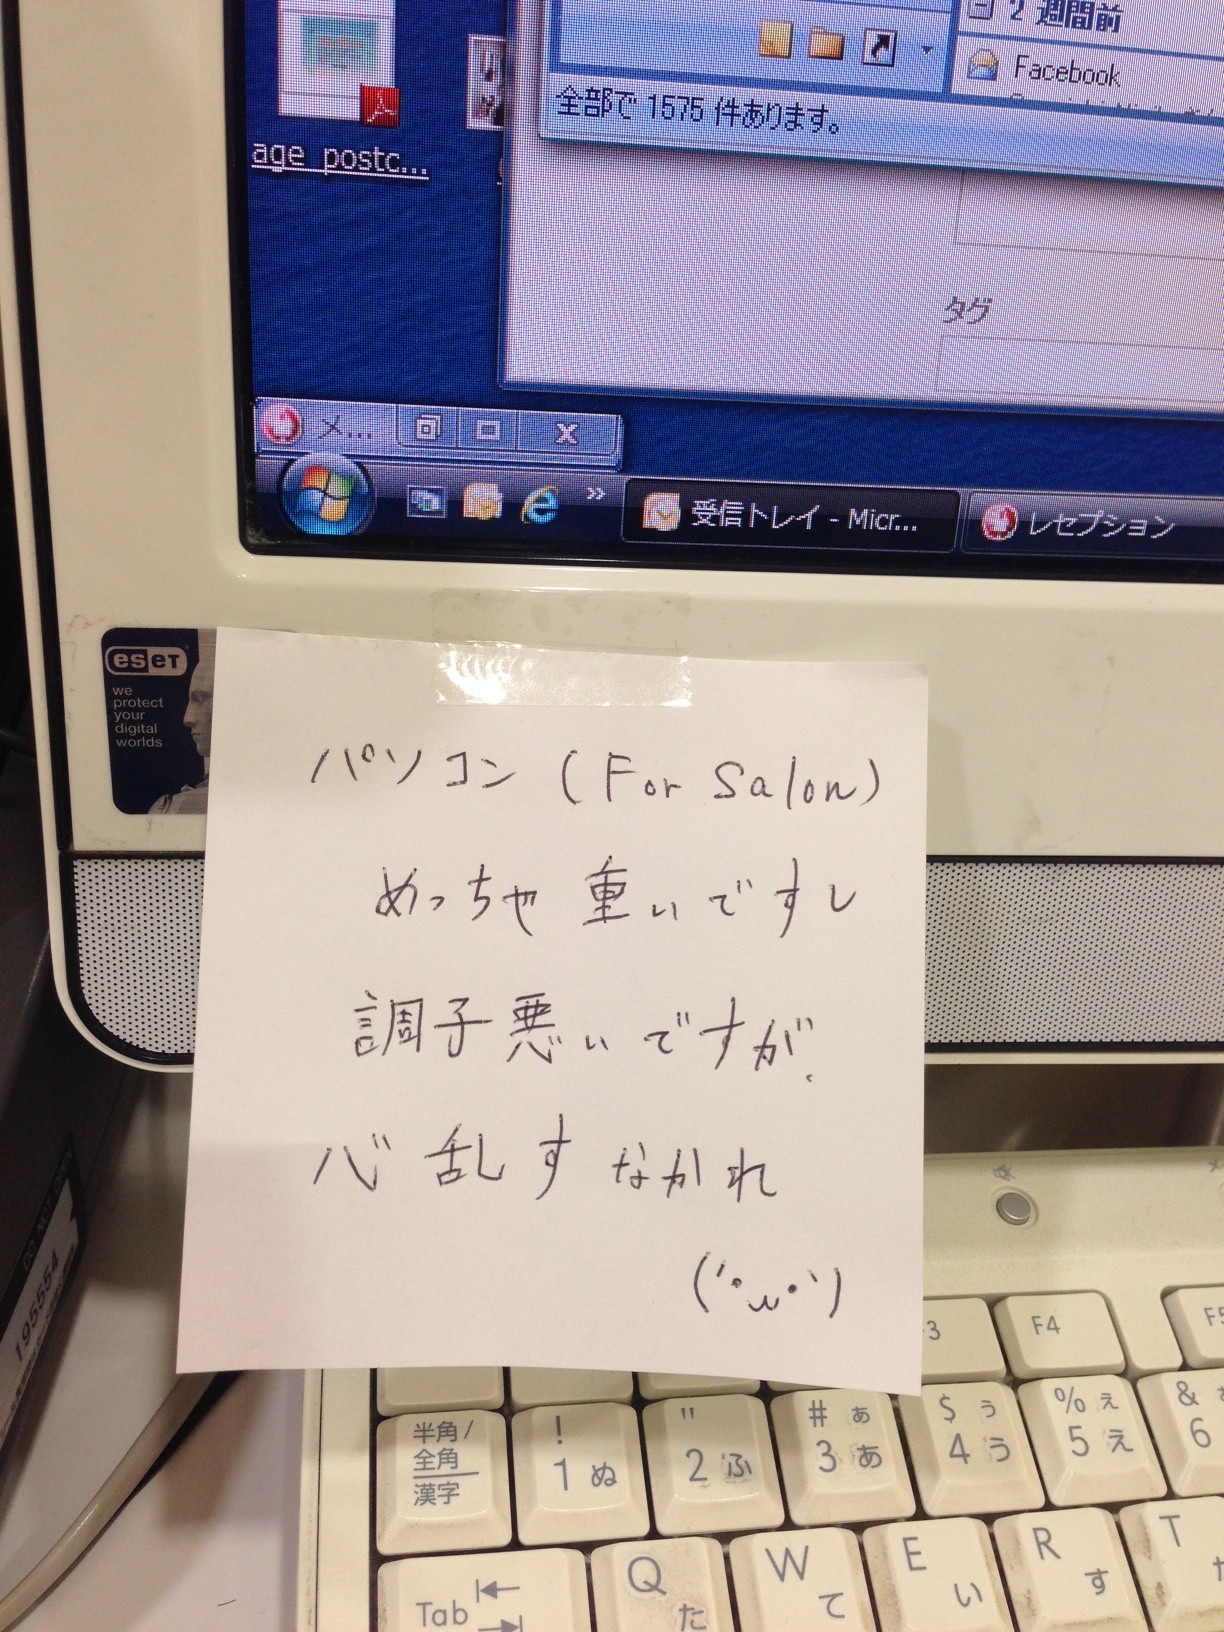 age postc...
2 週間前
Facebook
全部で 1575 件あります。
タグ
メ...
受信トレイ - Micr...
レセプション
eseT
we
protect
your
digital
worlds
パソコン (For Salon)
めっちゃ重いですし
調子悪いですが、
心乱すなかれ
(´・ω・`)
DO NOT COV
195554
F4
F5
半角/
全角
漢字
! 1 ぬ
" 2 ふ
# ぁ 3 あ
$ ぅ 4 う
% ぇ 5 え
& 6
Tab
Q た
W て
E い
R す
T